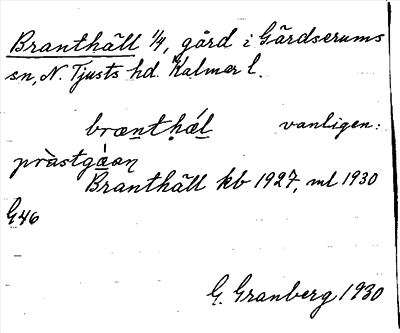 Branthäll 1/4, gård i Gärdserums
sn, N. Tjusts hd. Kalmar l.
brænthǽl vanligen:
pràstgáan
Branthäll kb 1927, ml 1930
G46
G. Granberg 1930